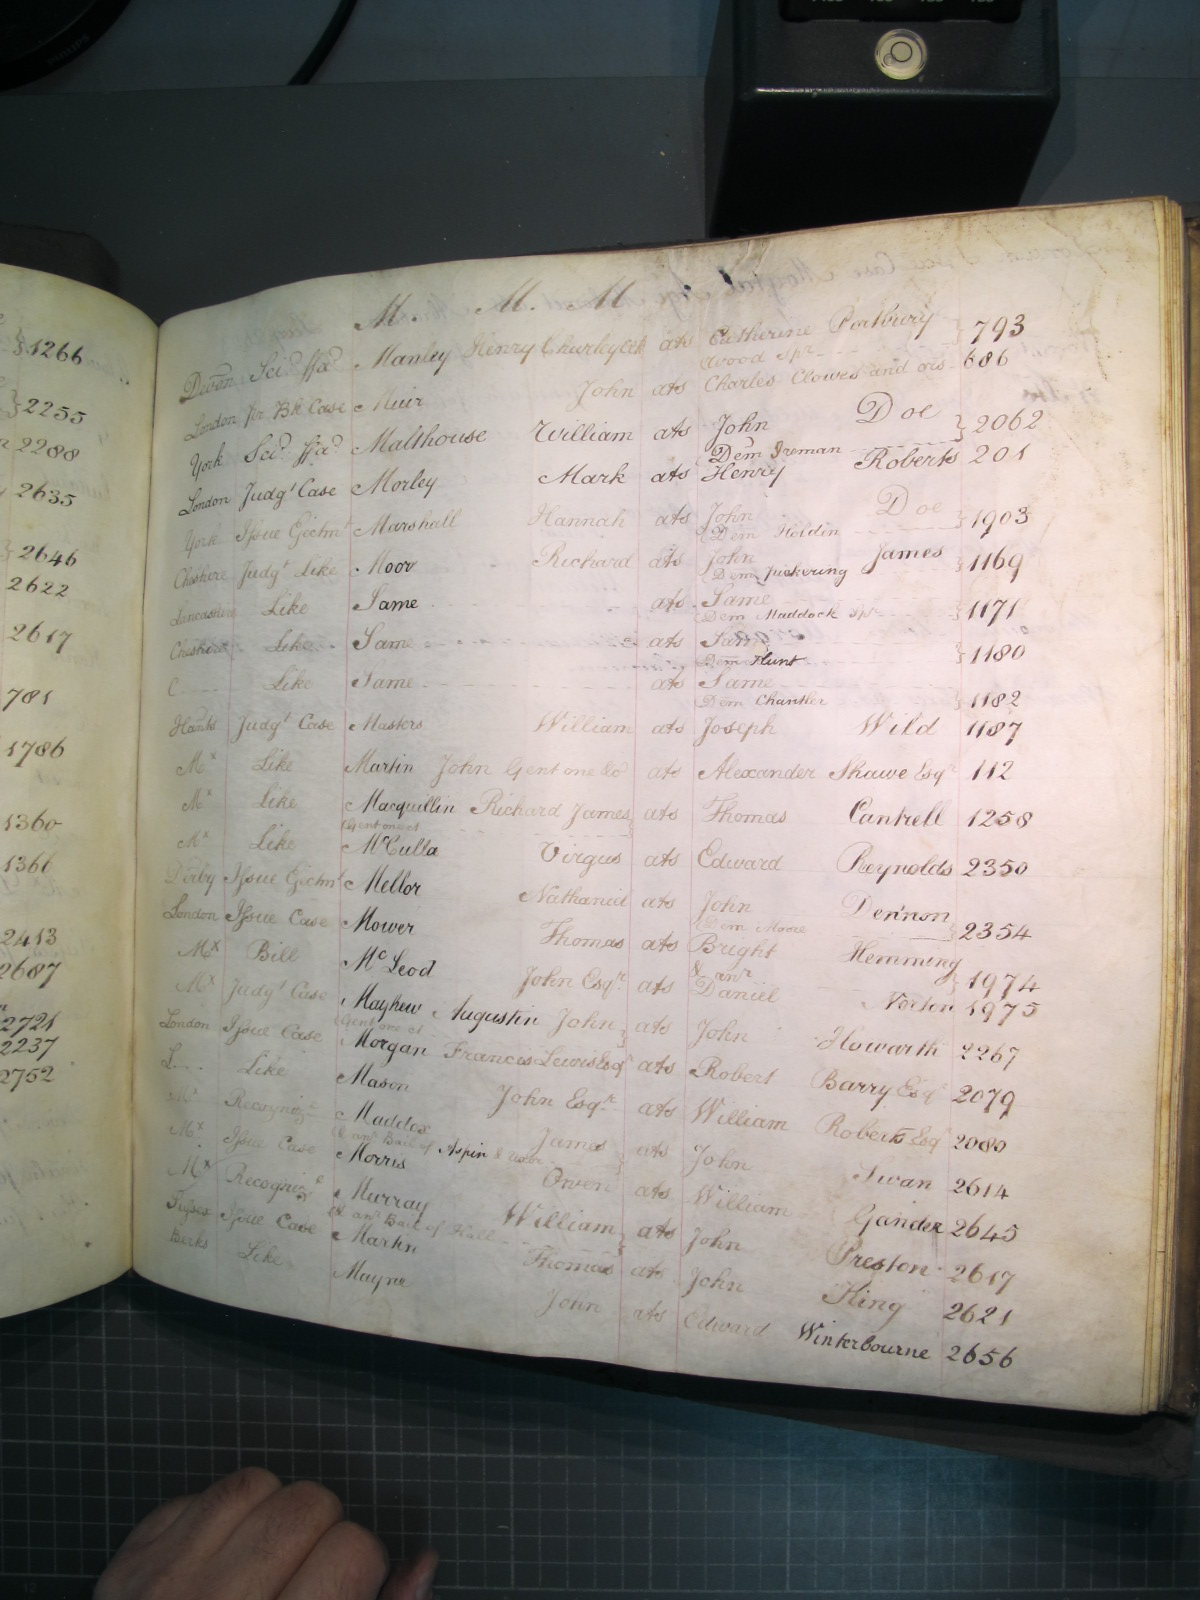 M. M. M
Devon Sci ffa Manley Henry Chorley Clk ats Catherine Portbury } 793
Wood Spr
London pr Bk Case Muir John ats Charles Clowes and ors 686
York Sci ffa Malthouse William ats John Doe } 2062
Dem Ireman
London Judgt Case Morley Mark ats Henry Roberts 201
York Issue Ejectmt Marshall Hannah ats John Doe } 1903
Dem Holdin
Cheshire Judgt Like Moor Richard ats John James } 1169
Dem Pickering
Lancashire Like Same ats Same } 1171
Dem Maddock Spr
Cheshire Like Same ats Same } 1180
Dem Hunt
C Like Same ats Same } 1182
Dem Chantler
Hants Judgt Case Masters William ats Joseph Wild 1187
Mx Like Martin John Gent one &c ats Alexander Shawe Esqr 112
Mx Like Macquillin Richard James ats Thomas Cantrell 1258
Gent one &c
Mx Like McCulla Virgus ats Edward Reynolds 2350
Derby Issue Ejectmt Mellor Nathaniel ats John Dennon } 2354
Dem Moore
London Issue Case Mower Thomas ats Bright Hemming } 1974
& anr
Mx Bill McLeod John Esqr ats Daniel Norton 1975
Mx Judgt Case Mayhew Augustin John } ats John Howarth 2267
Gent one &c
London Issue Case Morgan Francis Lewis Esqr ats Robert Barry Esqr 2079
L Like Mason John Esqr ats William Roberts Esqr 2080
Mx Recogniz Maddox James } ats John Swan 2614
& anr Bail of Aspin & anor
Mx Issue Case Morris Owen ats William Gander 2645
Mx Recogniz Murray William } ats John Preston 2617
& anr Bail of Hall
Sussex Issue Case Martin Thomas ats John King 2621
Berks Like Mayne John ats Edward Winterbourne 2656
1266
2255
2288
2635
2646
2622
2617
781
1786
1360
1366
2413
2687
2721
2237
2752
PHILIPS